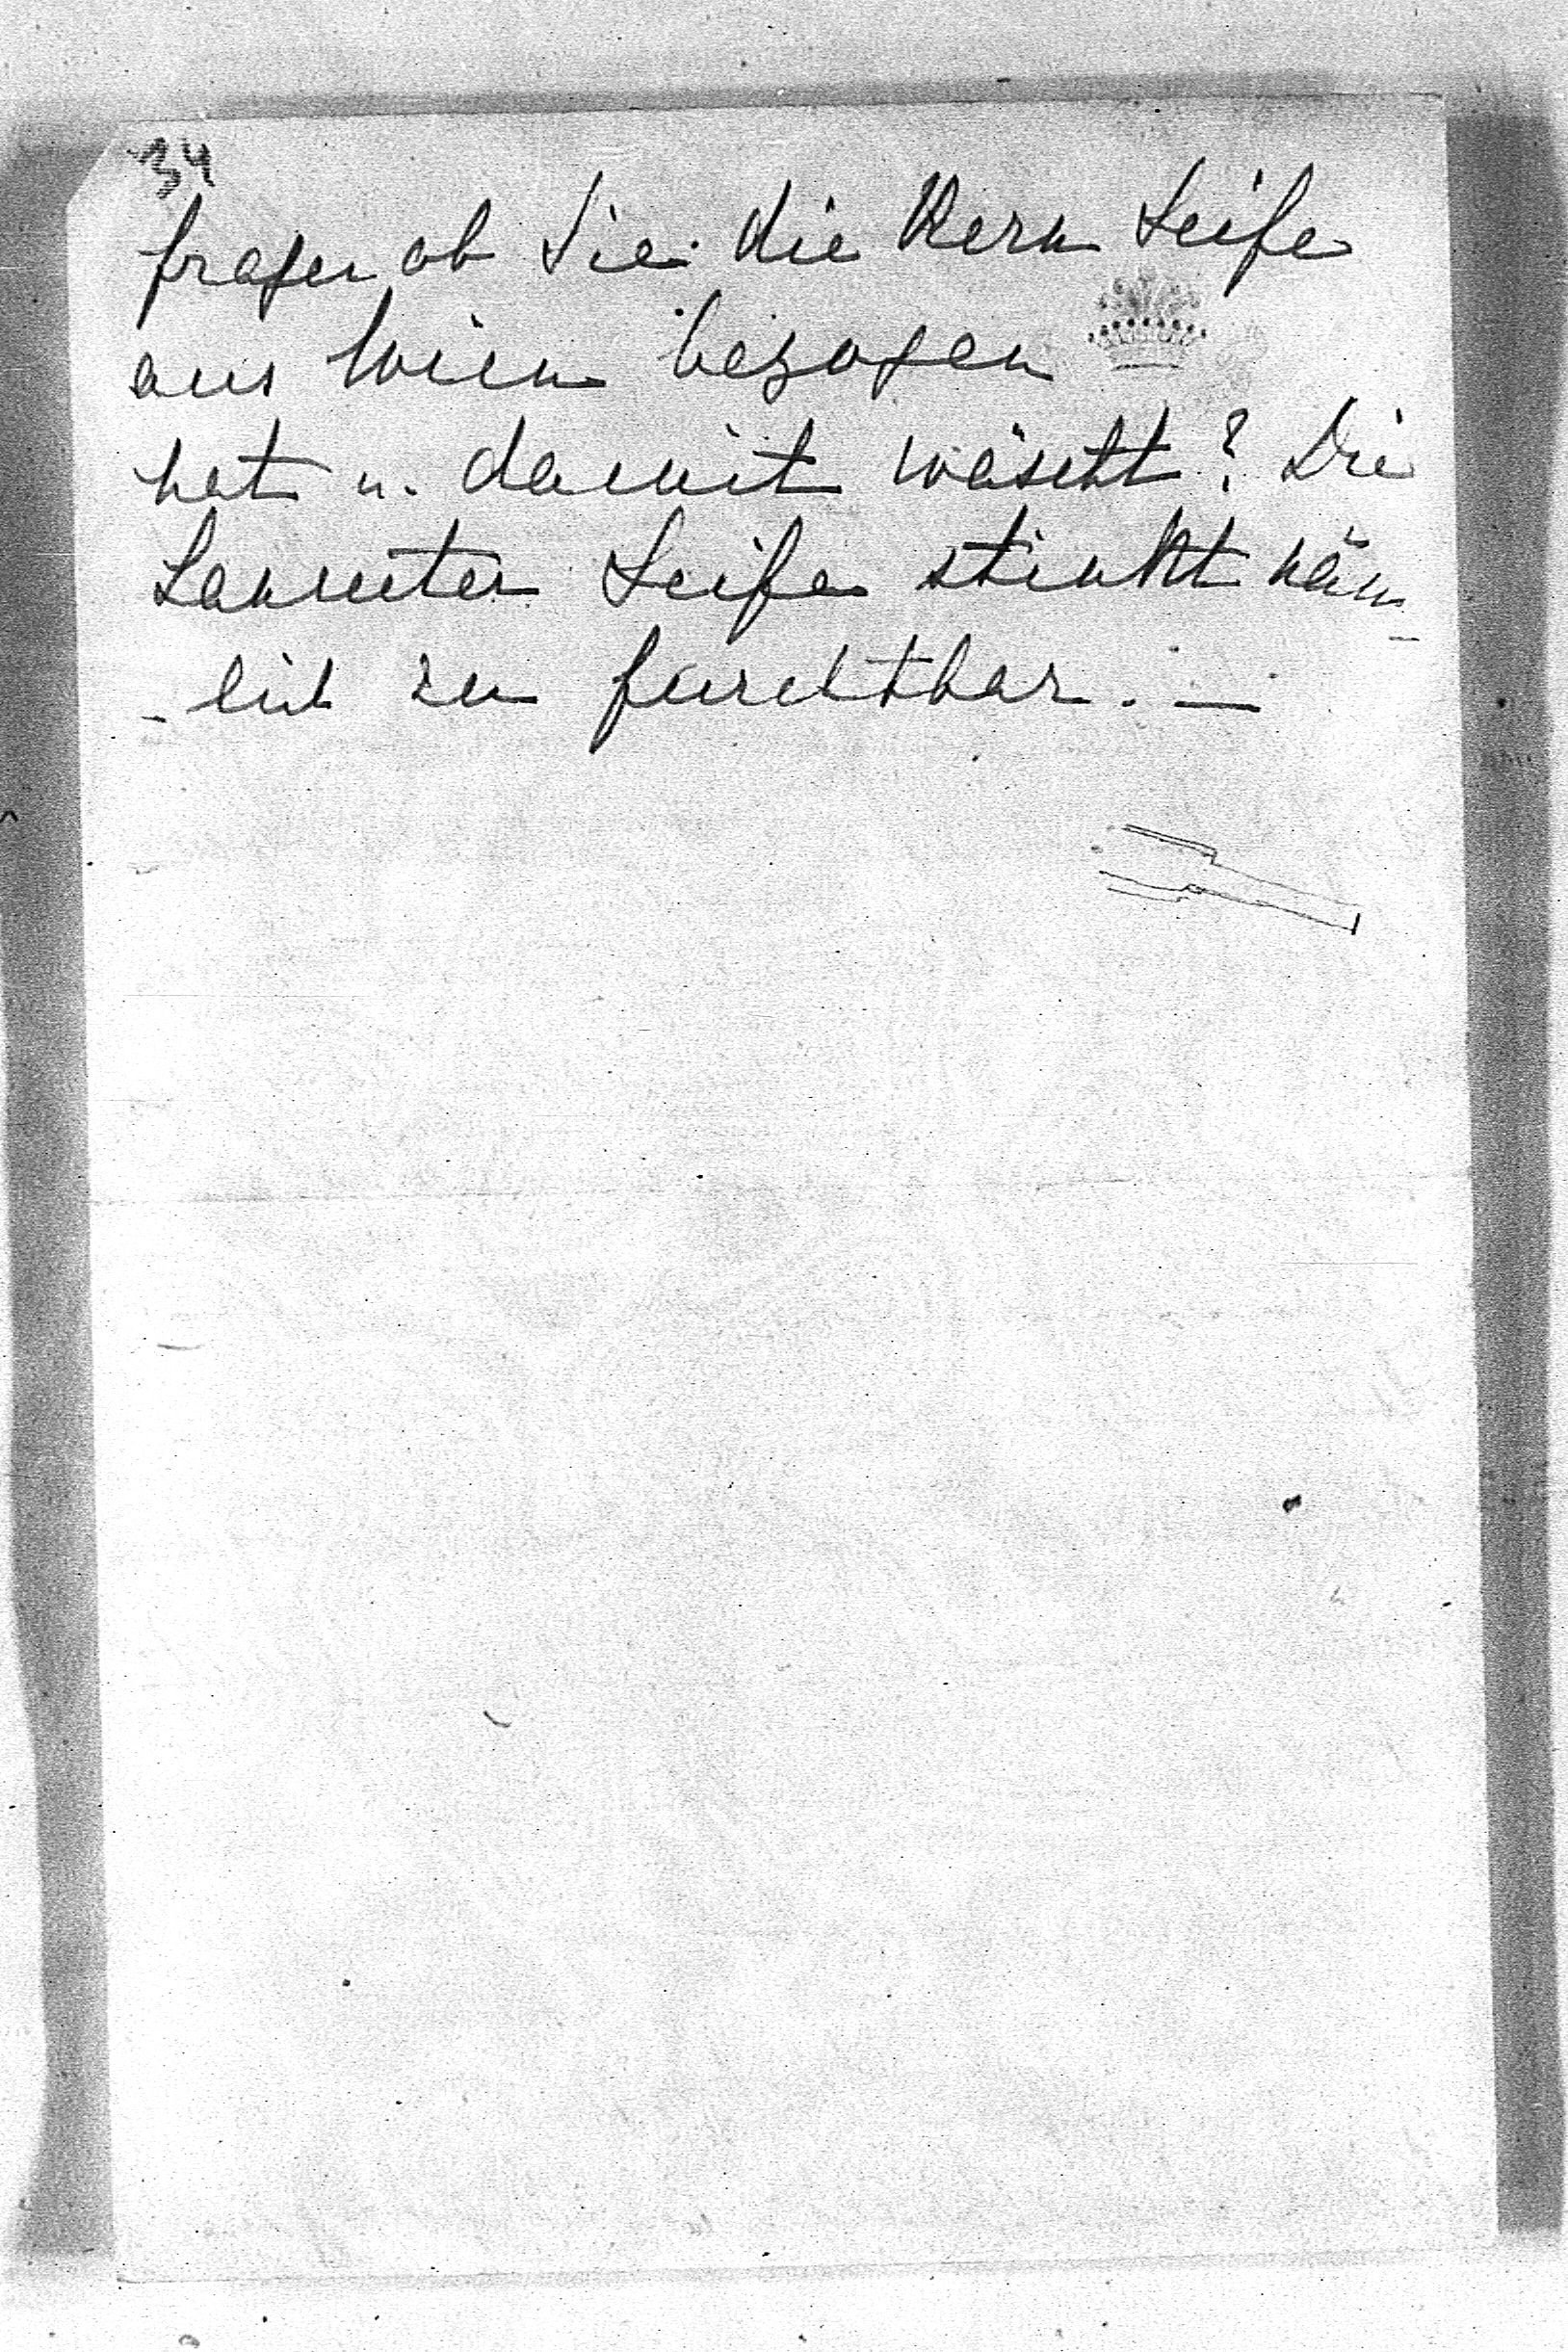 34
fragen ob Sie die Kern Seife
aus Wien bezogen
hat u. damit wäscht? Die
Seife stinkt näm-
-lich zu furchtbar. —